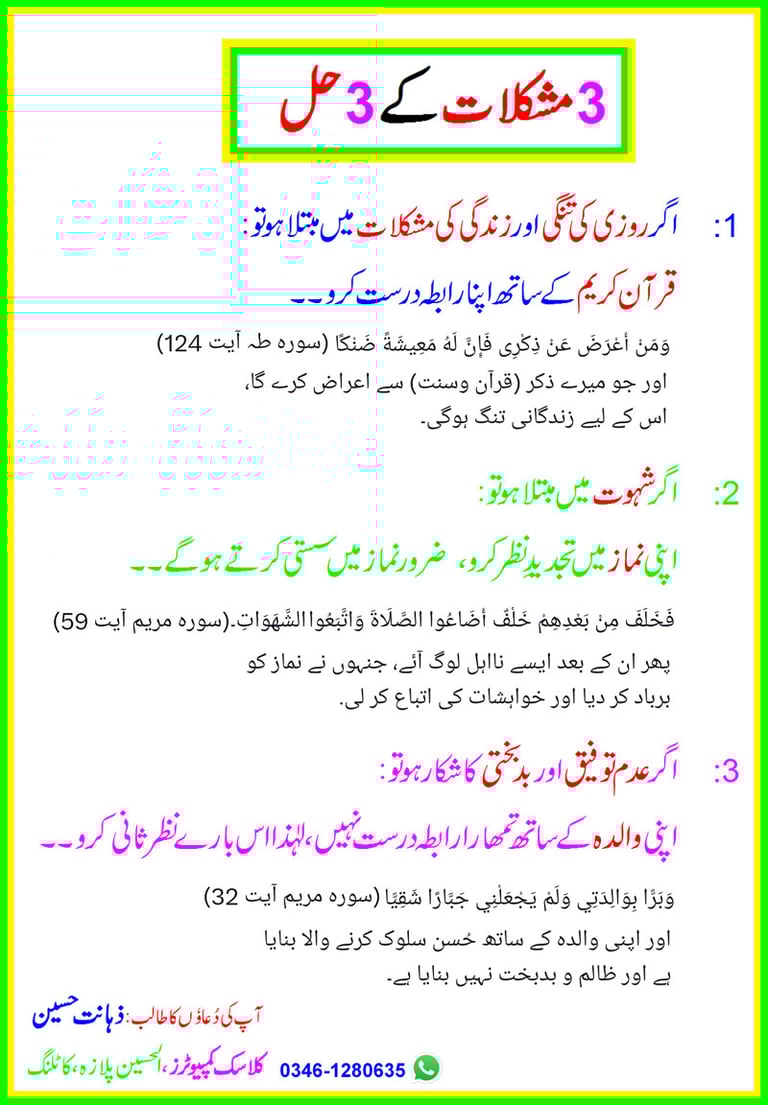 3 مشکلات کے 3 حل
1: اگر روزی کی تنگی اور زندگی کی مشکلات میں مبتلا ہو تو:
قرآن کریم کے ساتھ اپنا رابطہ درست کرو۔۔
وَمَنْ أَعْرَضَ عَنْ ذِكْرِى فَإِنَّ لَهُ مَعِيشَةً ضَنْكًا (سورہ طہ آیت 124)
اور جو میرے ذکر (قرآن وسنت) سے اعراض کرے گا،
اس کے لیے زندگانی تنگ ہوگی۔
2: اگر شہوت میں مبتلا ہو تو:
اپنی نماز میں تجدیدِ نظر کرو، ضرور نماز میں سستی کرتے ہو گے۔۔
فَخَلَفَ مِنْ بَعْدِهِمْ خَلْفٌ أَضَاعُوا الصَّلَاةَ وَاتَّبَعُوا الشَّهَوَاتِ۔(سورہ مریم آیت 59)
پھر ان کے بعد ایسے نااہل لوگ آئے، جنہوں نے نماز کو
برباد کر دیا اور خواہشات کی اتباع کر لی.
3: اگر عدم توفیق اور بدبختی کا شکار ہو تو:
اپنی والدہ کے ساتھ تمھارا رابطہ درست نہیں، لہٰذا اس بارے نظر ثانی کرو۔۔
وَبَرًّا بِوَالِدَتِي وَلَمْ يَجْعَلْنِي جَبَّارًا شَقِيًّا (سورہ مریم آیت 32)
اور اپنی والدہ کے ساتھ حُسن سلوک کرنے والا بنایا
ہے اور ظالم و بدبخت نہیں بنایا ہے۔
آپ کی دُعاؤں کا طالب: ذہانت حسین
کلاسک کمپیوٹرز، الحسین پلازہ، کاٹلنگ 0346-1280635